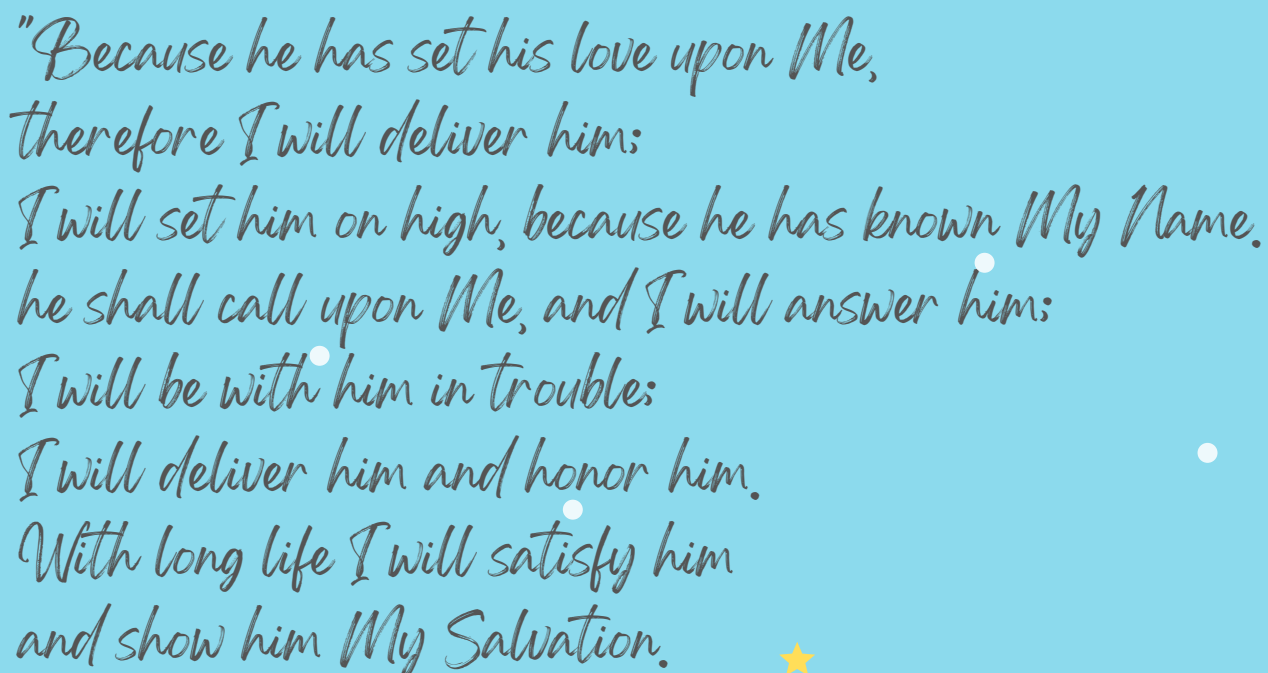 "Because he has set his love upon Me,
therefore I will deliver him;
I will set him on high, because he has known My Name.
he shall call upon Me, and I will answer him;
I will be with him in trouble;
I will deliver him and honor him.
With long life I will satisfy him
and show him My Salvation.